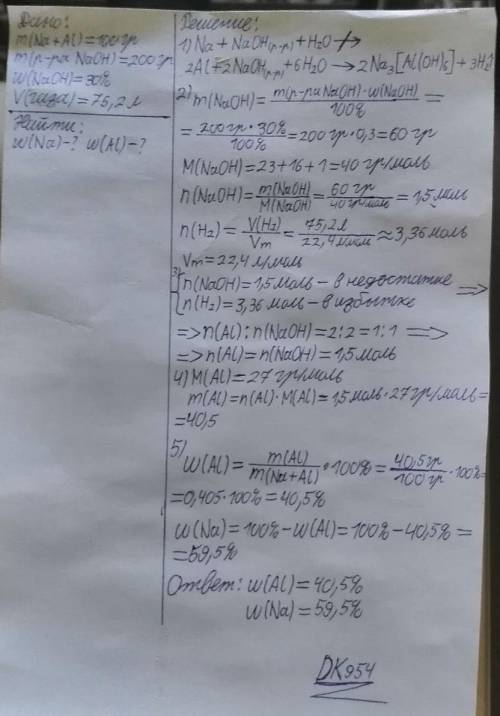 Дано:
m(Na+Al)=100гр
m(р-ра NaOH)=200гр
w(NaOH)=30%
V(газа)=75,2л
Найти:
w(Na)-? w(Al)-?
Решение:
1) Na + NaOH(р-р) + H₂O ↛
2Al+2NaOH(р-р)+6H₂O → 2Na₃[Al(OH)₆] + 3H₂
2) m(NaOH) = m(р-ра NaOH)·w(NaOH)/100% =
= 200гр·30%/100% = 200гр·0,3=60гр
M(NaOH)=23+16+1=40гр/моль
n(NaOH)= m(NaOH)/M(NaOH) = 60гр/40гр/моль = 1,5моль
n(H₂)= V(H₂)/Vm = 75,2л/22,4л/моль ≈ 3,36моль
Vm=22,4л/моль
3) n(NaOH)=1,5моль – в недостатке =>
n(H₂)=3,36моль – в избытке
=> n(Al):n(NaOH)=2:2=1:1 =>
=> n(Al)=n(NaOH)=1,5моль
4) M(Al)=27гр/моль
m(Al)=n(Al)·M(Al)=1,5моль·27гр/моль=
=40,5
5)
w(Al)= m(Al)/m(Na+Al) ·100% = 40,5гр/100гр ·100%=
=0,405·100%=40,5%
w(Na)=100%-w(Al)=100%-40,5%=
=59,5%
Ответ: w(Al)=40,5%
w(Na)=59,5%
DK954